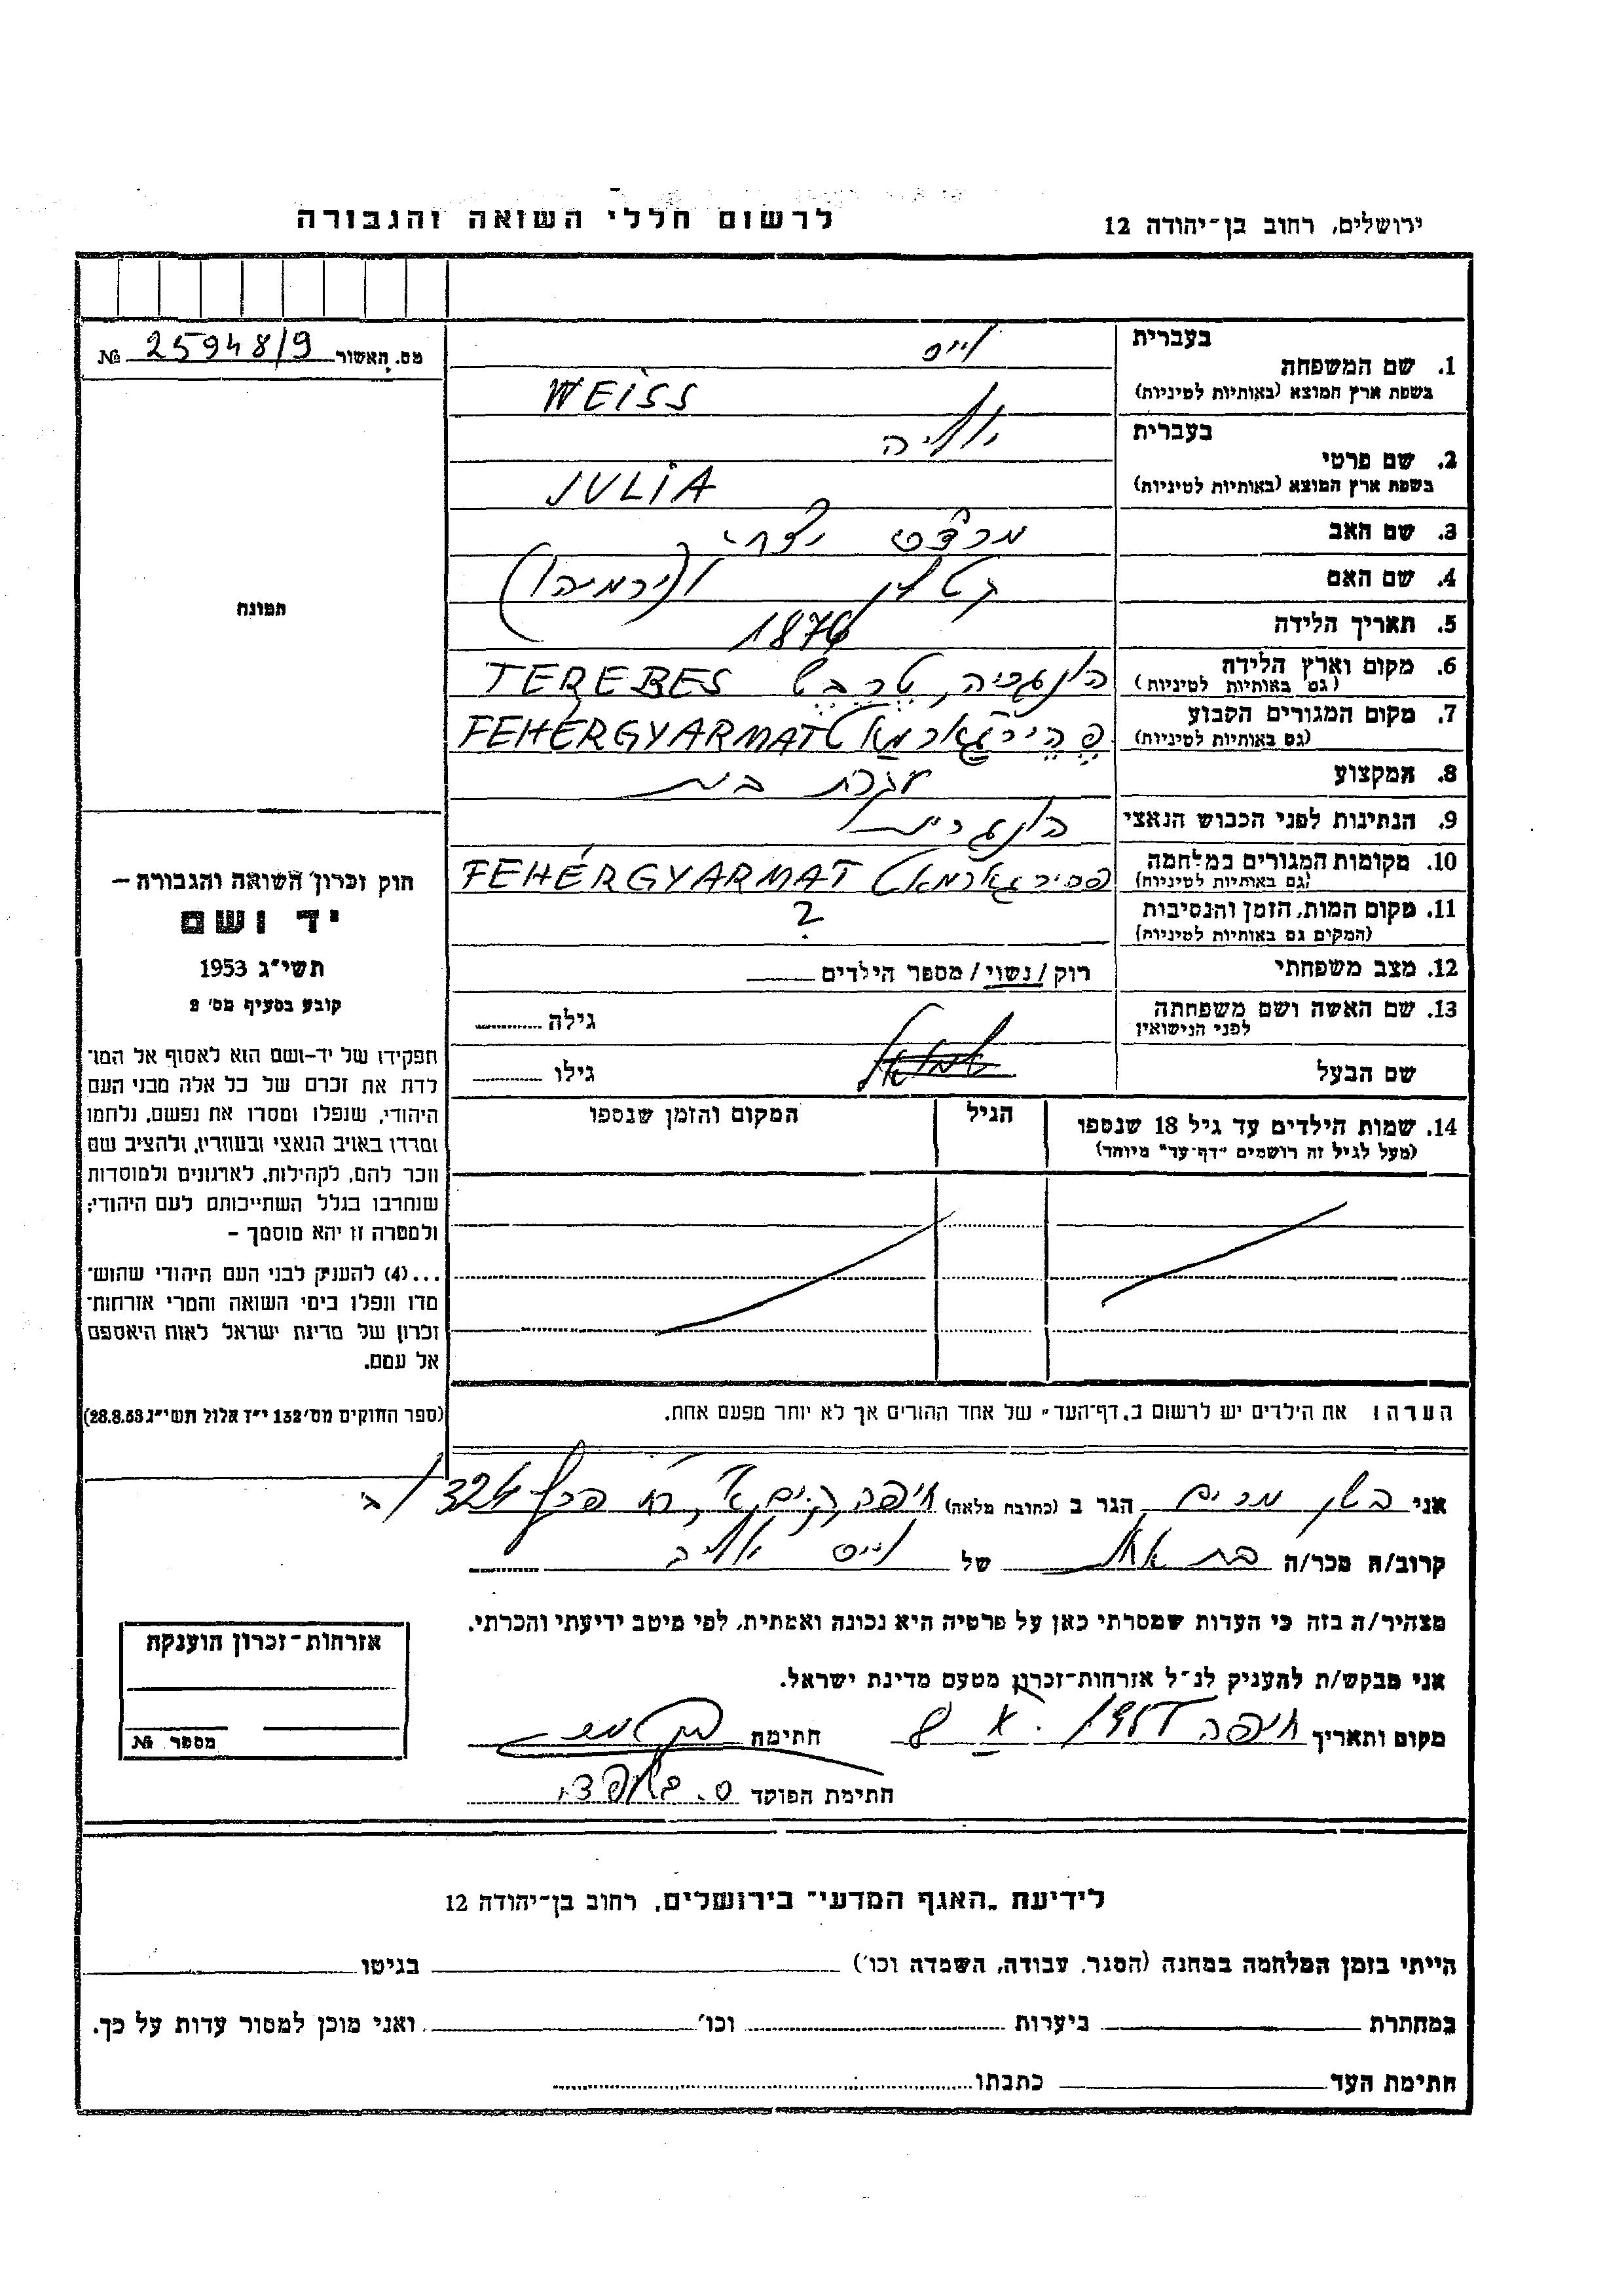 ירושלים, רחוב בן־יהודה 12
לרשום חללי השואה והגבורה
מס. האשור № 25948/9
תמונה
חוק זכרון השואה והגבורה –
יד ושם
תשי״ג 1953
קובע בסעיף מס׳ 2
תפקידו של יד-ושם הוא לאסוף אל המו־
לדת את זכרם של כל אלה מבני העם
היהודי, שנפלו ומסרו את נפשם, נלחמו
ומרדו באויב הנאצי ובעוזריו, ולהציב שם
וזכר להם, לקהילות, לארגונים ולמוסדות
שנחרבו בגלל השתייכותם לעם היהודי;
ולמטרה זו יהא מוסמך –
...(4) להעניק לבני העם היהודי שהוש־
מדו ונפלו בימי השואה והמרי אזרחות־
זכרון של מדינת ישראל לאות היאספם
אל עמם.
(ספר החוקים מס׳ 132 י״ז אלול תשי״ג 28.8.53)
בעברית וייס
1. שם המשפחה
בשפת ארץ המוצא (באותיות לטיניות) WEISS
בעברית יוליה
2. שם פרטי
בשפת ארץ המוצא (באותיות לטיניות) JULIA
3. שם האב
4. שם האם
5. תאריך הלידה
6. מקום וארץ הלידה הונגריה, טרבש TEREBES
(גם באותיות לטיניות)
7. מקום המגורים הקבוע פהירגארמאט FEHÉRGYARMAT
(גם באותיות לטיניות)
8. המקצוע עקרת בית
9. הנתינות לפני הכבוש הנאצי הונגרית
10. מקומות המגורים במלחמה FEHÉRGYARMAT
(גם באותיות לטיניות)
11. מקום המות, הזמן והנסיבות ?
(המקום גם באותיות לטיניות)
12. מצב משפחתי רוק / נשוי / מספר הילדים
13. שם האשה ושם משפחתה גילה
לפני הנישואין
שם הבעל שמואל גילו
14. שמות הילדים עד גיל 18 שנספו הגיל המקום והזמן שנספו
(מעל לגיל זה רושמים "דף-עד" מיוחד)
הערה: את הילדים יש לרשום ב„דף־העד״ של אחד ההורים אך לא יותר מפעם אחת.
אני מרים הגר ב (כתובת מלאה) חיפה 324/ב'
קרוב/ה מכר/ה בת אח של וייס
מצהיר/ה בזה כי העדות שמסרתי כאן על פרטיה היא נכונה ואמתית, לפי מיטב ידיעתי והכרתי.
אני מבקש/ת להעניק לנ״ל אזרחות-זכרון מטעם מדינת ישראל.
מקום ותאריך חיפה חתימה
חתימת הפוקד
אזרחות-זכרון הוענקה
מספר №
לידיעת „האגף המדעי״ בירושלים, רחוב בן-יהודה 12
הייתי בזמן המלחמה במחנה (הסגר, עבודה, השמדה וכו׳) בגיטו
במחתרת ביערות וכו׳ ואני מוכן למסור עדות על כך.
חתימת העד כתבתו